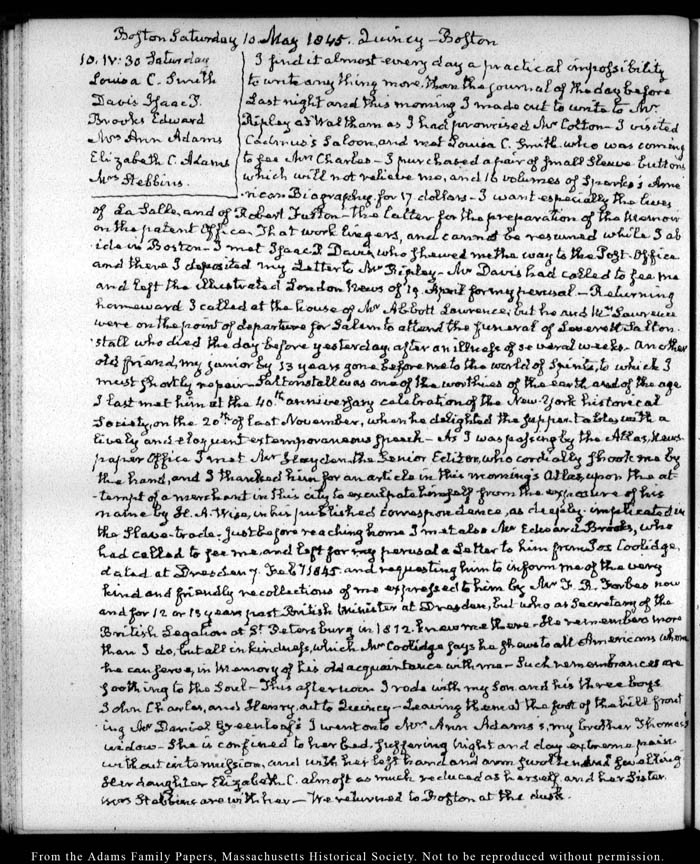 Boston Saturday 10 May 1845. Quincy – Boston
10. IV: 30 Saturday
Louisa C. Smith
Davis Isaac P.
Brooks Edward
Mrs Ann Adams
Elizabeth C. Adams
Mrs Stebbins.
I find it almost every day a practical impossibility
to write any thing more than the journal of the day before
Last night and this morning I made out to write to Mr.
Ripley at Waltham as I had promised Mr Colton – I visited
Saloon, and met Louisa C. Smith, who was coming
to see Mrs Charles – I purchased a pair of small sleeve buttons
which will not relieve me, and 16 volumes of Sparks's Ame
rican Biography, for 17 dollars – I want especially the lives
of La Salle, and of Robert Fulton – the latter for the preparation of the Memoir
on the patent Office. That work lingers, and cannot be resumed while I ab
ide in Boston – I met Isaac P. Davis, who shewed me the way to the Post-Office
and there I deposited my Letter to Mr Ripley – Mr Davis had called to see me
and left the illustrated London News of 19 April for my perusal – Returning
homeward I called at the house of Mr Abbott Lawrence, but he and Mrs Lawrence
were on the point of departure for Salem to attend the funeral of Leverett Salton
stall who died the day before yesterday, after an illness of several weeks – another
old friend, my junior by 13 years gone before me to the world of Spirits, to which I
must shortly repair – Saltonstall was one of the worthies of the earth and of the age
I last met him at the 40th anniversary celebration of the New-York historical
Society, on the 20th of last November, when he delighted the supper-tables with a
lively and eloquent extemporaneous speech – As I was passing by the Atlas, News
paper Office I met Mr Hayden, the Senior Editor, who cordially shook me by
the hand, and I thanked him for an article in this morning's Atlas, upon the at
tempt of a merchant in this city to exculpate himself from the exposure of his
name by H. A. Wise, in his published correspondence, as deeply implicated in
the Slave-trade. Just before reaching home I met also Mr Edward Brooks, who
had called to see me, and left for my perusal a Letter to him from Jos Coolidge,
dated at Dresden 7. Feby 1845. and requesting him to inform me of the very
kind and friendly recollections of me expressed to him by Mr F. R. Forbes now
and for 12 or 13 years past British Minister at Dresden, but who as Secretary of the
British Legation at St. Petersburg in 1812. knew me there. He remembers more
than I do, but all in kindness, which Mr Coolidge says he shews to all Americans whom
he can serve, in Memory of his old acquaintance with me – Such remembrances are
soothing to the Soul – This afternoon I rode with my son and his three boys
John Charles, and Henry, out to Quincy – Leaving them at the foot of the hill front
ing Mr Daniel Greenleaf's I went on to Mrs Ann Adams's, my brother Thomas's
widow – She is confined to her bed. suffering night and day extreme pain
without intermission, and with her left hand and arm swollen
Her daughter Elizabeth C. almost as much reduced as herself, and her Sister
Mrs Stebbins are with her – We returned to Boston at the dusk.
From the Adams Family Papers, Massachusetts Historical Society. Not to be reproduced without permission.